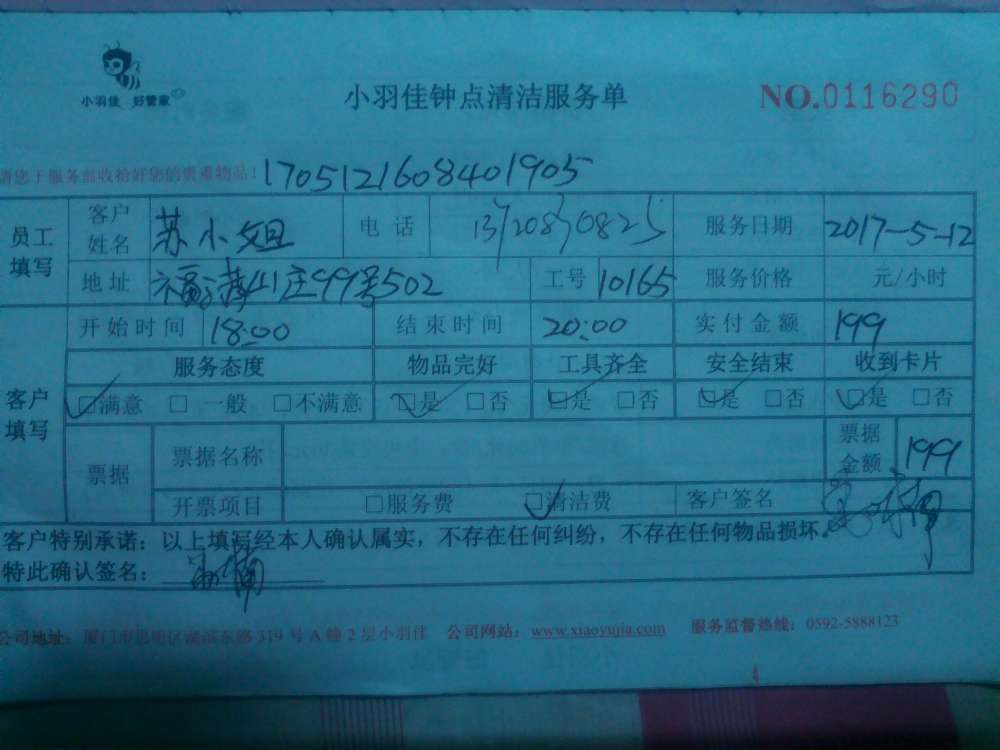 小羽佳 好管家
小羽佳钟点清洁服务单
NO.0116290
请您于服务前收拾好您的贵重物品！
1705121608401905
员工填写 客户姓名 苏小姐 电话 服务日期 2017-5-12
地址 山庄99号502 工号 10165 服务价格 元/小时
客户填写 开始时间 18:00 结束时间 20:00 实付金额 199
服务态度 物品完好 工具齐全 安全结束 收到卡片
□满意 □一般 □不满意 □是 □否 □是 □否 □是 □否 □是 □否
票据 票据名称 票据金额 199
开票项目 □服务费 □清洁费 客户签名
客户特别承诺：以上填写经本人确认属实，不存在任何纠纷，不存在任何物品损坏。
特此确认签名：
公司地址：厦门市思明区湖滨东路319号A幢2层小羽佳 公司网站：www.xiaoyujia.com 服务监督热线：0592-5888123